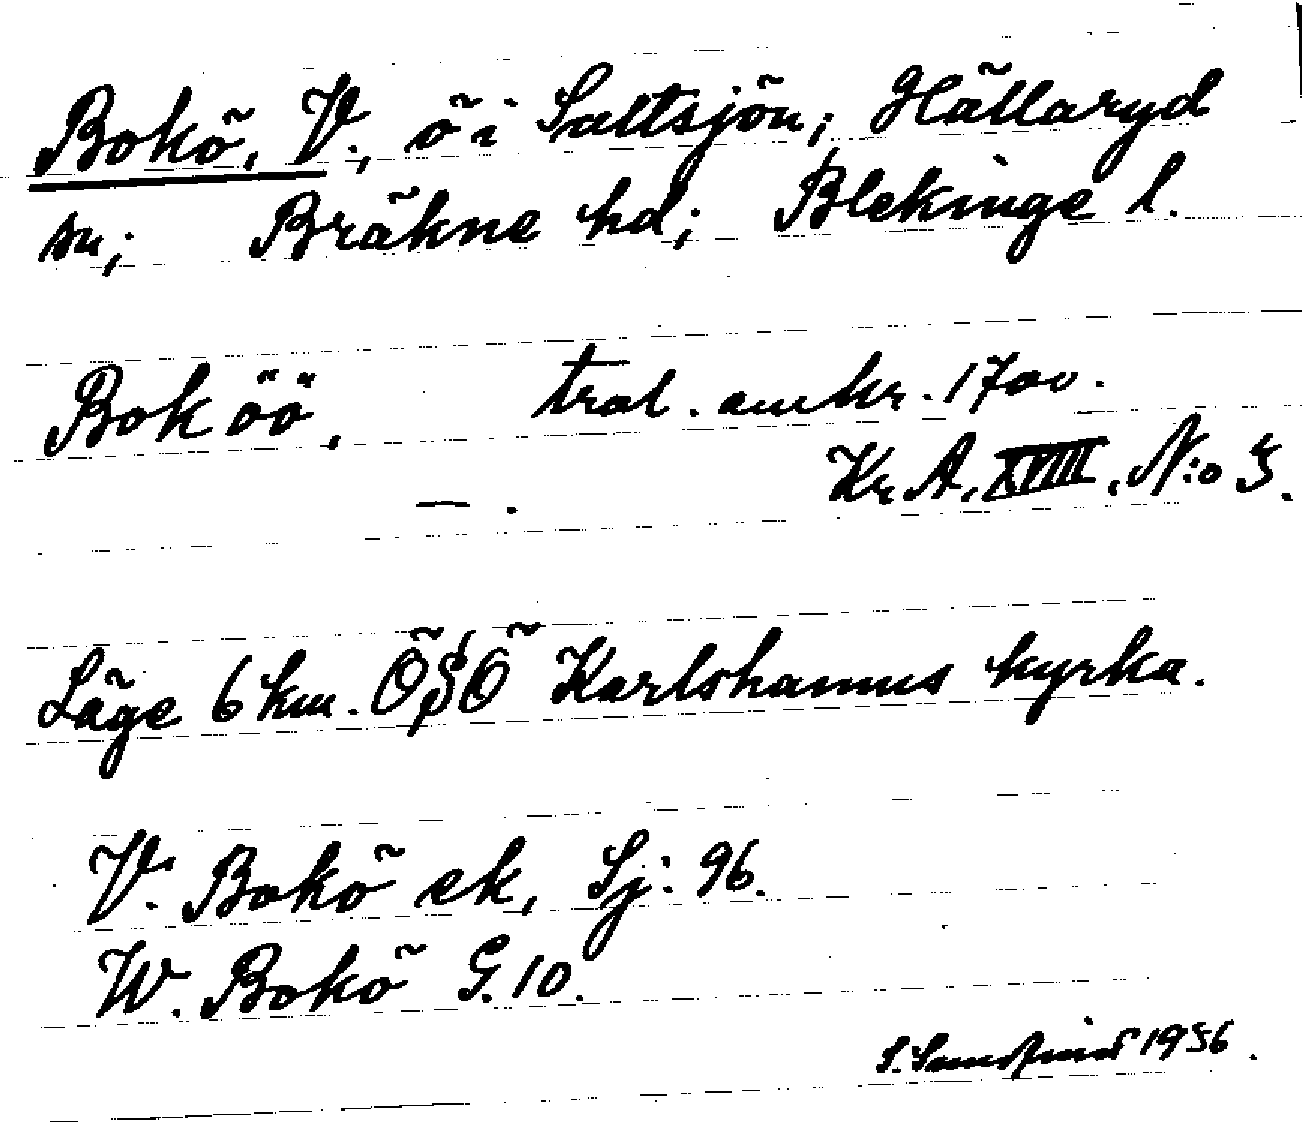 Bokö, V., ö i Saltsjön; Hällaryd
sn; Bräkne hd; Blekinge l.
Bok öö, trol. omkr. 1700.
— . Kr. A. XVIII, N:o 5.
Läge 6 km. ÖSÖ Karlshamns kyrka.
V. Bokö ek, Sj: 96.
W. Bokö G. 10.
S. 1956.